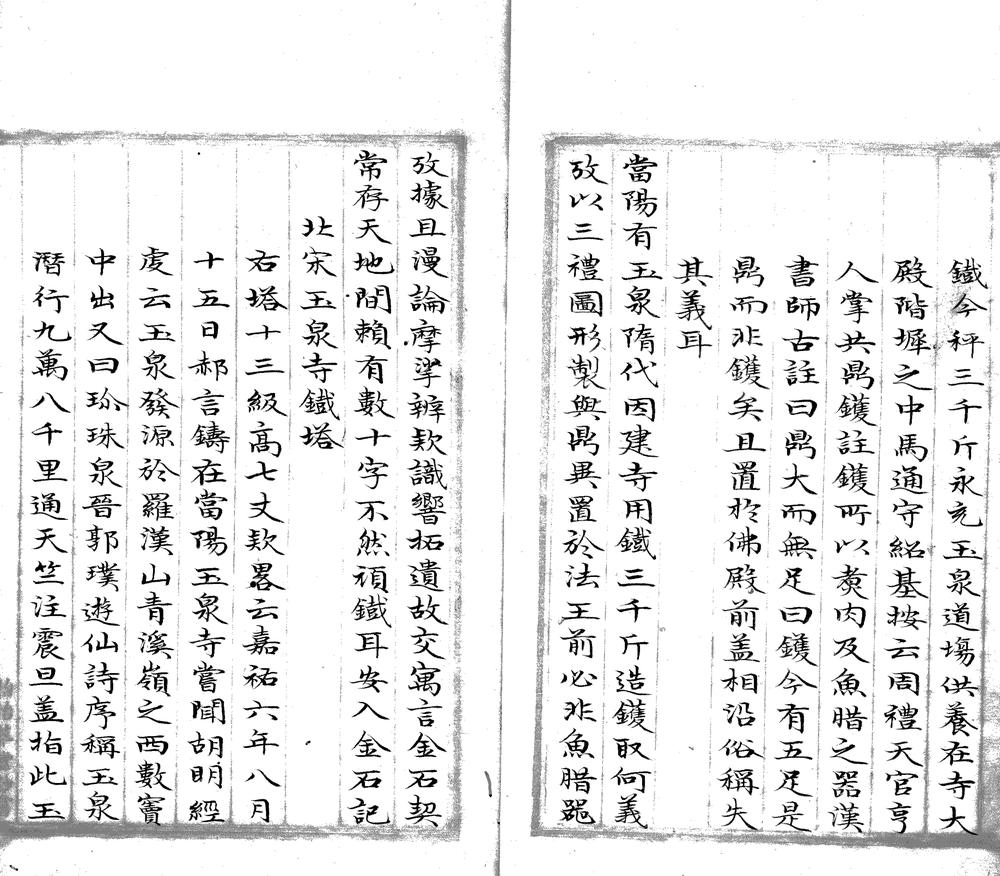 鐵今秤三千斤永充玉泉道塲供養在寺大
殿階墀之中馬通守紹基按云周禮天官亨
人掌共鼎鑊註鑊所以煑肉及魚腊之器漢
書師古註曰鼎大而無足曰鑊今有五足是
鼎而非鑊矣且置於佛殿前盖相沿俗稱失
其義耳
當陽有玉泉隋代因建寺用鐵三千斤造鑊取何義
攷以三禮圖形製與鼎異置於法王前必非魚腊器
攷據且漫論摩挲辨欵識響拓遺故交寓言金石契
常存天地間賴有數十字不然頑鐵耳安入金石記
北宋玉泉寺鐵塔
右塔十三級高七丈欵畧云嘉祐六年八月
十五日郝言鑄在當陽玉泉寺嘗聞胡明經
虔云玉泉發源於羅漢山青溪嶺之西數竇
中出又曰珎珠泉晉郭璞遊仙詩序稱玉泉
潛行九萬八千里通天竺注震旦盖指此玉